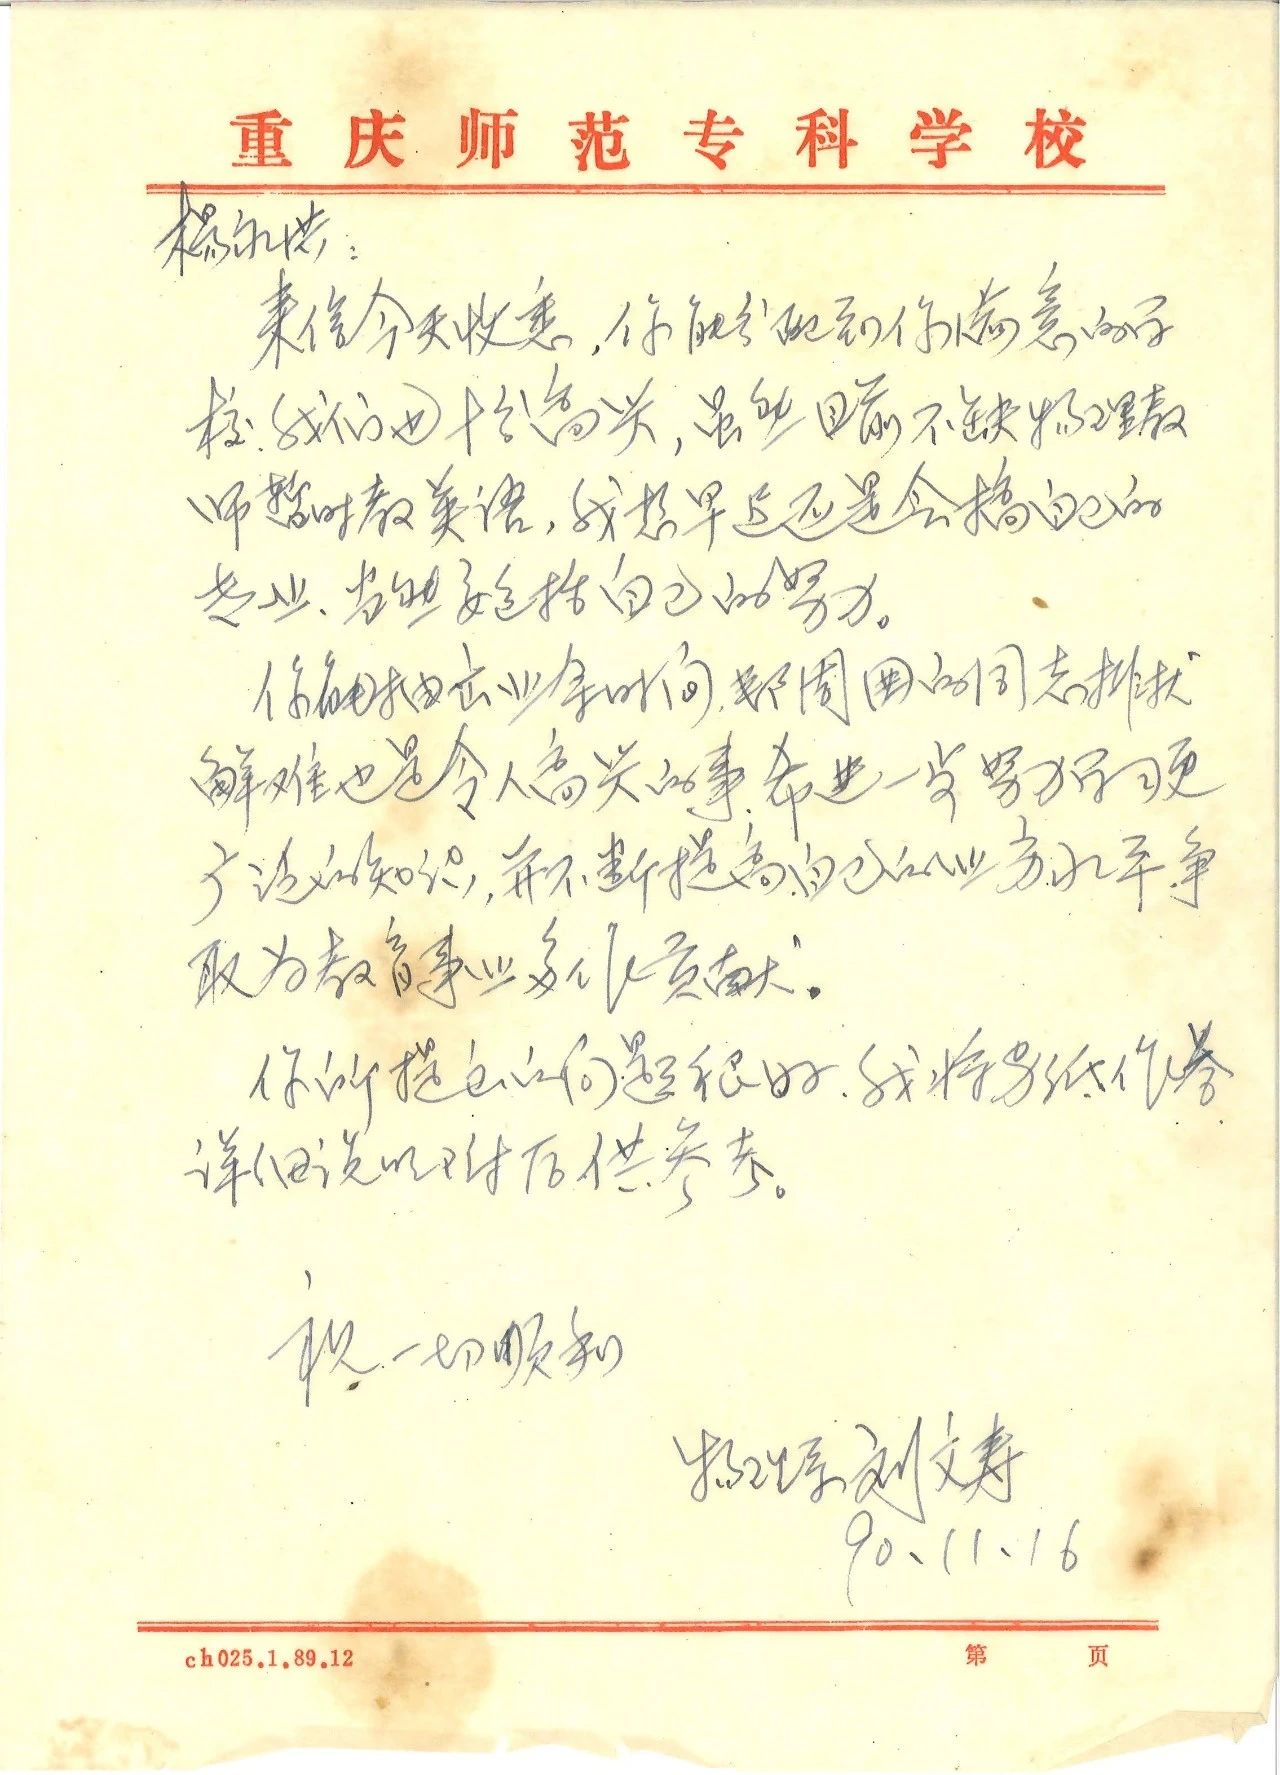 重庆师范专科学校
杨永洪:
来信今天收悉,你能分配到你满意的学
校.我们也十分高兴,虽然目前不缺物理教
师暂时教英语,我想早迟还是会搞自己的
专业、当然要包括自己的努力。
你能抽出业余时间,帮周围的同志排忧
解难也是令人高兴的事.希进一步努力学习更
广泛的知识,并不断提高自己的业务水平,争
取为教育事业多作贡献。
你所提出的问题很好.我将另纸作答
详细说明附后供参考。
祝一切顺利
物理系刘文寿
90.11.16
ch025.1.89.12
第 页